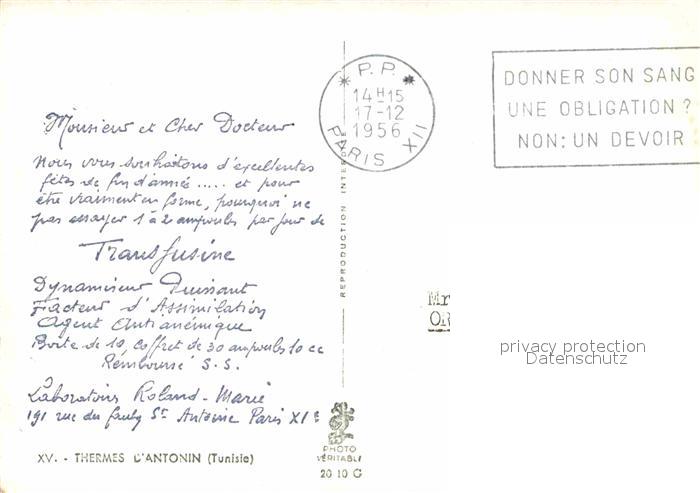 Monsieur et Cher Docteur
Nous vous souhaitons d'excellentes
fêtes de fin d'année ..... et pour
être vraiment en forme, pourquoi ne
pas essayer 1 à 2 ampoules par jour de
Transfusine
Dynamiseur Puissant
Facteur d'Assimilation
Agent Antianémique
Boîte de 10, Coffret de 30 ampoules 10 cc
Remboursé S.S.
Laboratoires Roland-Marie
191 rue du faubg St Antoine Paris XIe
XV. - THERMES D'ANTONIN (Tunisie)
REPRODUCTION INTERDITE
PHOTO
VÉRITABLE
20 10 G
* P.P. *
14H15
17-12
1956
PARIS XII
DONNER SON SANG
UNE OBLIGATION ?
NON: UN DEVOIR
privacy protection
Datenschutz